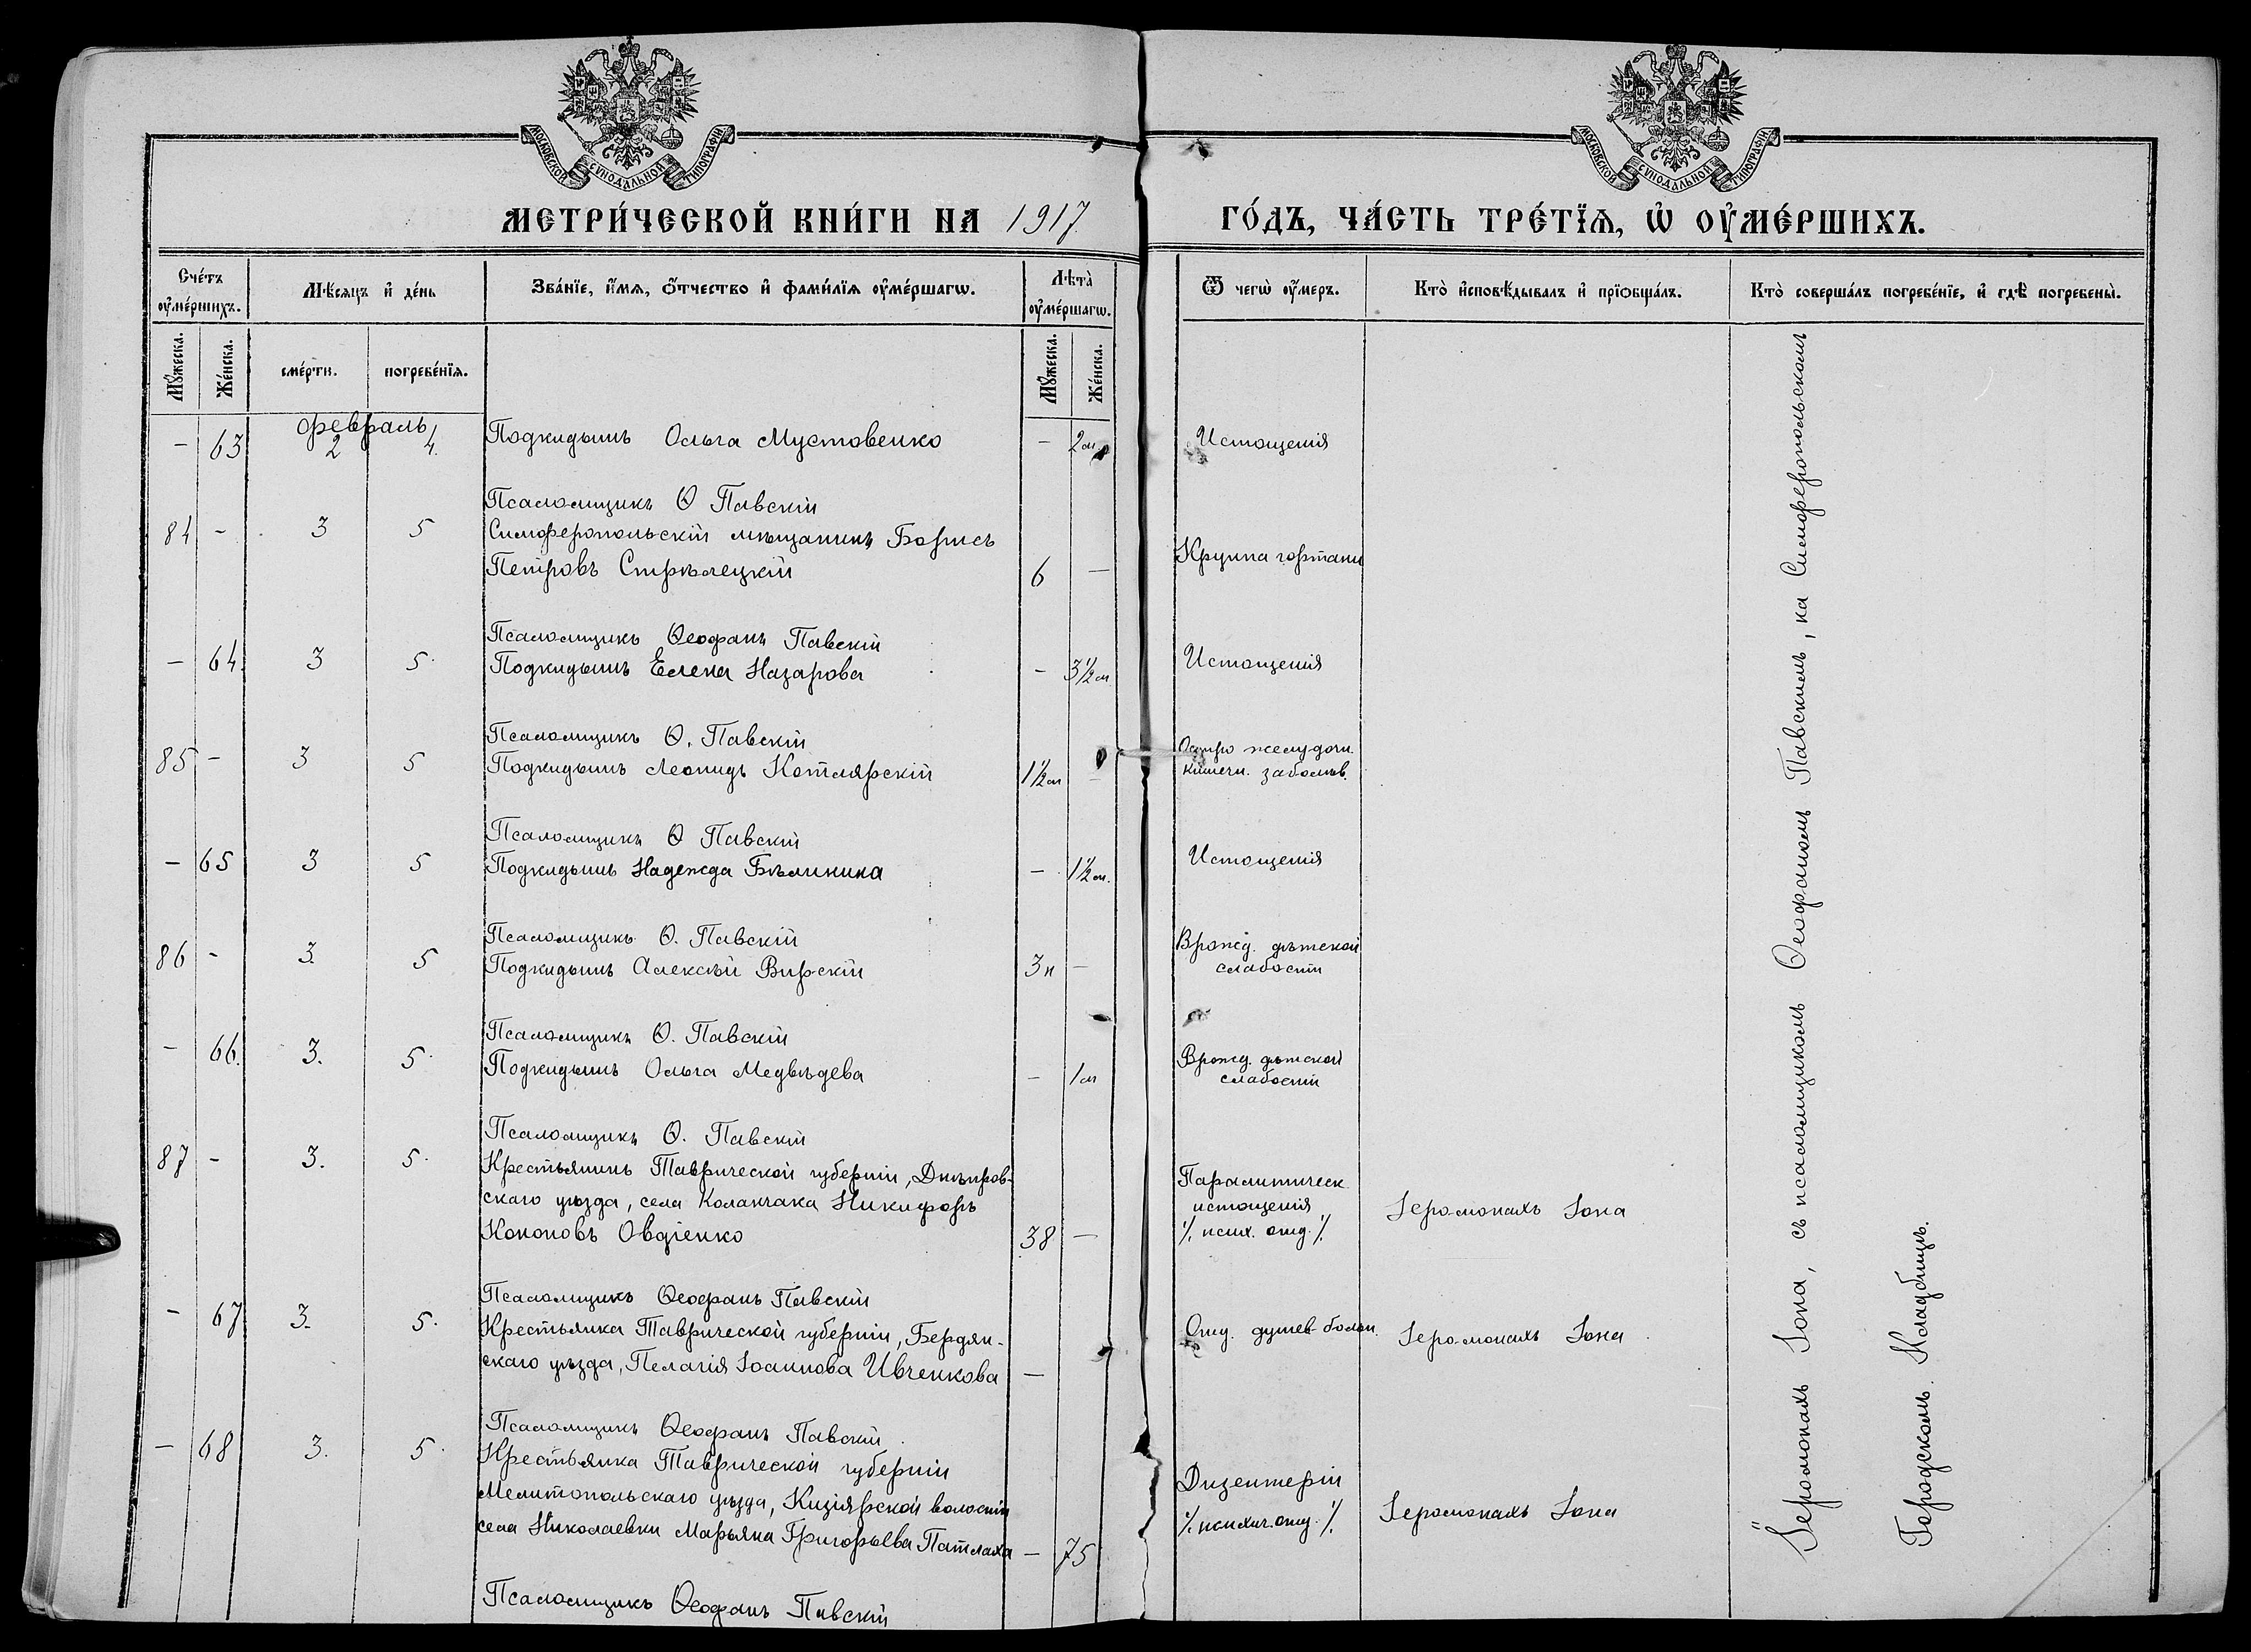 МОСКОВСКОЙ СѴНОДАЛЬНОЙ ТИПОГРАФІИ
МОСКОВСКОЙ СѴНОДАЛЬНОЙ ТИПОГРАФІИ
МЕТРИ́ЧЕСКОЙ КНИ́ГИ НА 1917
ГО́ДЪ, ЧА́СТЬ ТРЕ́ТЇѦ, Ѡ҆ ОУ҆МЕ́РШИХЪ.
Сче́тъ оу҆ме́ршихъ.
Мѣ́сяцъ и҆ де́нь
Зва́нїе, и҆́мѧ, ѻ҆́тчество и҆ фами́лїѧ оу҆ме́ршагѡ.
Лѣта̀ оу҆ме́ршагѡ.
Ѿ чегѡ̀ оу҆́меръ.
Кто̀ и҆сповѣ́дывалъ и҆ прїѻбща́лъ.
Кто̀ соверша́лъ погребе́нїе, и҆ гдѣ̀ погребены̀.
Мꙋ́жеска.
Же́нска.
сме́рти.
погребе́нїѧ.
Мꙋ́жеска.
Же́нска.
февраль
– 63 2 4. Подкидышъ Ольга Мустовенко – 2м Истощенія
Псаломщикъ Ѳ Павскій
84 – 3 5 Симферопольскій мѣщанинъ Борисъ
Петровъ Стрѣлецкій 6 – Круппа гортани
Псаломщикъ Ѳеофанъ Павскій
– 64. 3 5. Подкидышъ Елена Назарова – 3½м. Истощенія
Псаломщикъ Ѳ. Павскій
85 – 3 5 Подкидышъ Леонидъ Котлярскій 1½м – Остро желудочн.
кишечн. заболѣв.
Псаломщикъ Ѳ Павскій
– 65 3 5 Подкидышъ Надежда Бѣлинина – 1½м. Истощенія
Псаломщикъ Ѳ. Павскій
86 – 3. 5 Подкидышъ Алексѣй Вирскій 3н – Врожд. дѣтской
слабости
Псаломщикъ Ѳ. Павскій
– 66. 3. 5. Подкидышъ Ольга Медвѣдева – 1м Врожд. дѣтской
слабости
Псаломщикъ Ѳ. Павскій
87 – 3. 5. Крестьянинъ Таврической губерніи, Днѣпров-
скаго уѣзда, села Коланчака Никифоръ
Кононовъ Овдіенко 38 –
Паралитическ.
истощенія
/. псих. отд. /.
Іеромонахъ Іона
Псаломщикъ Ѳеофанъ Павскій
– 67 3. 5. Крестьянка Таврической губерніи, Бердян-
скаго уѣзда, Пелагія Іоаннова Ивченкова –
Отд. душев болѣн. Іеромонахъ Іона
Псаломщикъ Ѳеофанъ Павскій
– 68 3. 5. Крестьянка Таврической губерніи
Мелитопольскаго уѣзда, Кизіярской волости
села Николаевки Марьяна Григорьева Патлаха – 75
Дизентеріи
/. психич. отд. /.
Іеромонахъ Іона
Псаломщикъ Ѳеофанъ Павскій
Іеромонахъ Іона, съ псаломщикомъ Ѳеофаномъ Павскимъ, на Симферопольскомъ
Городскомъ Кладбищѣ.